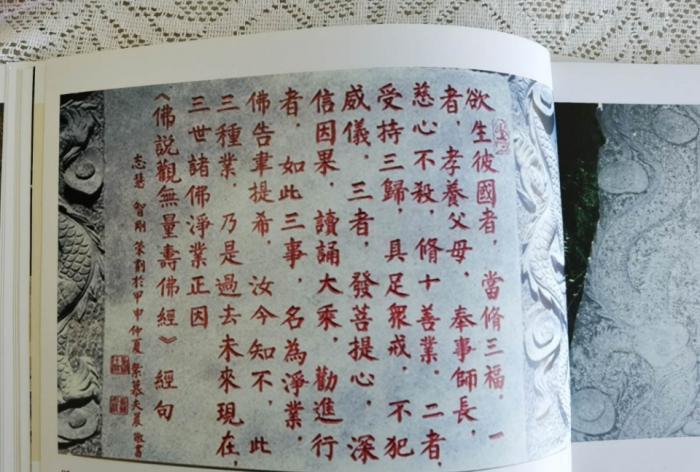 欲生彼國者，當脩三福，一
者，孝養父母，奉事師長，
慈心不殺，脩十善業，二者，
受持三歸，具足眾戒，不犯
威儀，三者，發菩提心，深
信因果，讀誦大乘，勸進行
者，如此三事，名為淨業，
佛告韋提希，汝今知不，此
三種業，乃是過去未來現在，
三世諸佛淨業正因
《佛說觀無量壽佛經》經句
志慧 智剛 策劃於甲申仲夏 敬書